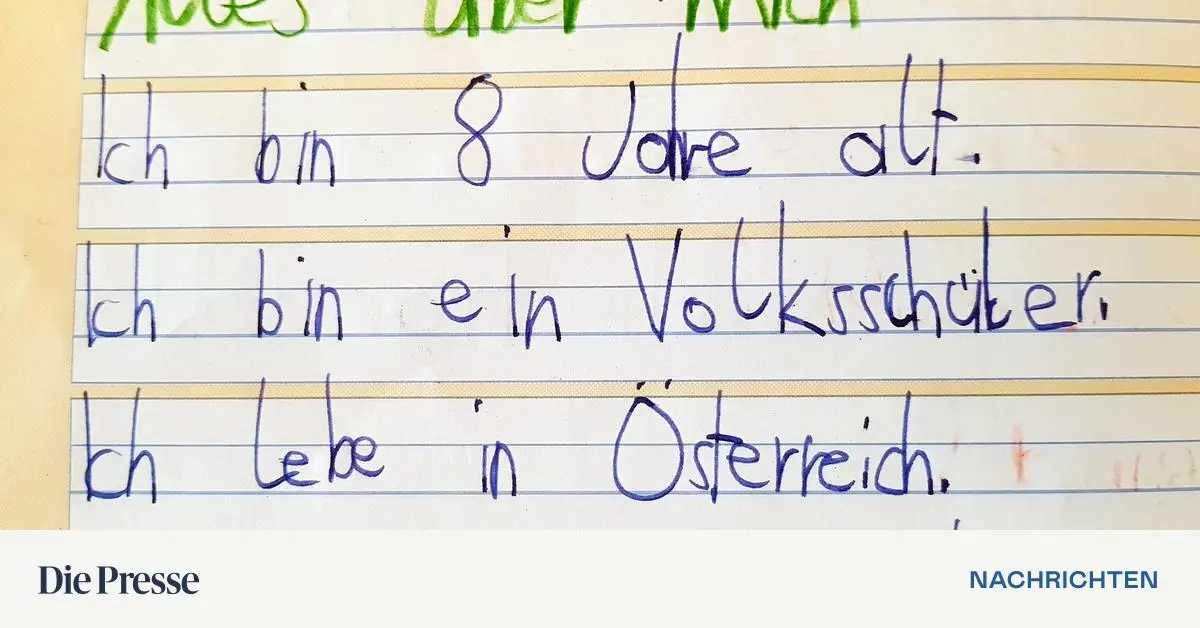 Alles über mich
Ich bin 8 Jahre alt.
Ich bin ein Volksschüler.
Ich lebe in Österreich.
Die Presse
NACHRICHTEN